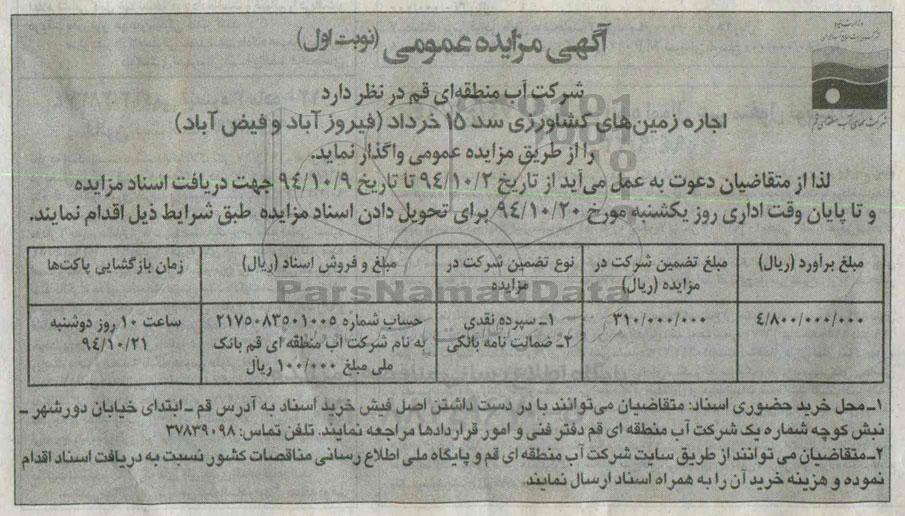 آگهی مزایده عمومی (نوبت اول)
شرکت آب منطقه‌ای قم در نظر دارد
اجاره زمین‌های کشاورزی سد ۱۵ خرداد (فیروز آباد و فیض آباد)
را از طریق مزایده عمومی واگذار نماید.
لذا از متقاضیان دعوت به عمل می‌آید از تاریخ ۹۴/۱۰/۲ تا تاریخ ۹۴/۱۰/۹ جهت دریافت اسناد مزایده
و تا پایان وقت اداری روز یکشنبه مورخ ۹۴/۱۰/۲۰ برای تحویل دادن اسناد مزایده طبق شرایط ذیل اقدام نمایند.
شرکت سهامی آب منطقه‌ای قم
مبلغ برآورد (ریال)
مبلغ تضمین شرکت در
مزایده (ریال)
نوع تضمین شرکت در
مزایده
مبلغ و فروش اسناد (ریال)
زمان بازگشایی پاکت‌ها
۴/۸۰۰/۰۰۰/۰۰۰
۳۱۰/۰۰۰/۰۰۰
۱ـ سپرده نقدی
۲ـ ضمانت نامه بانکی
حساب شماره ۲۱۷۵۰۸۳۵۰۱۰۰۵
به نام شرکت آب منطقه ای قم بانک
ملی مبلغ ۱۰۰/۰۰۰ ریال
ساعت ۱۰ روز دوشنبه
۹۴/۱۰/۲۱
۱ـ محل خرید حضوری اسناد: متقاضیان می‌توانند با در دست داشتن اصل فیش خرید اسناد به آدرس قم ـ ابتدای خیابان دورشهر ـ
نبش کوچه شماره یک شرکت آب منطقه ای قم دفتر فنی و امور قراردادها مراجعه نمایند. تلفن تماس: ۳۷۸۳۹۰۹۸
۲ـ متقاضیان می توانند از طریق سایت شرکت آب منطقه ای قم و پایگاه ملی اطلاع رسانی مناقصات کشور نسبت به دریافت اسناد اقدام
نموده و هزینه خرید آن را به همراه اسناد ارسال نمایند.
ParsNamadData